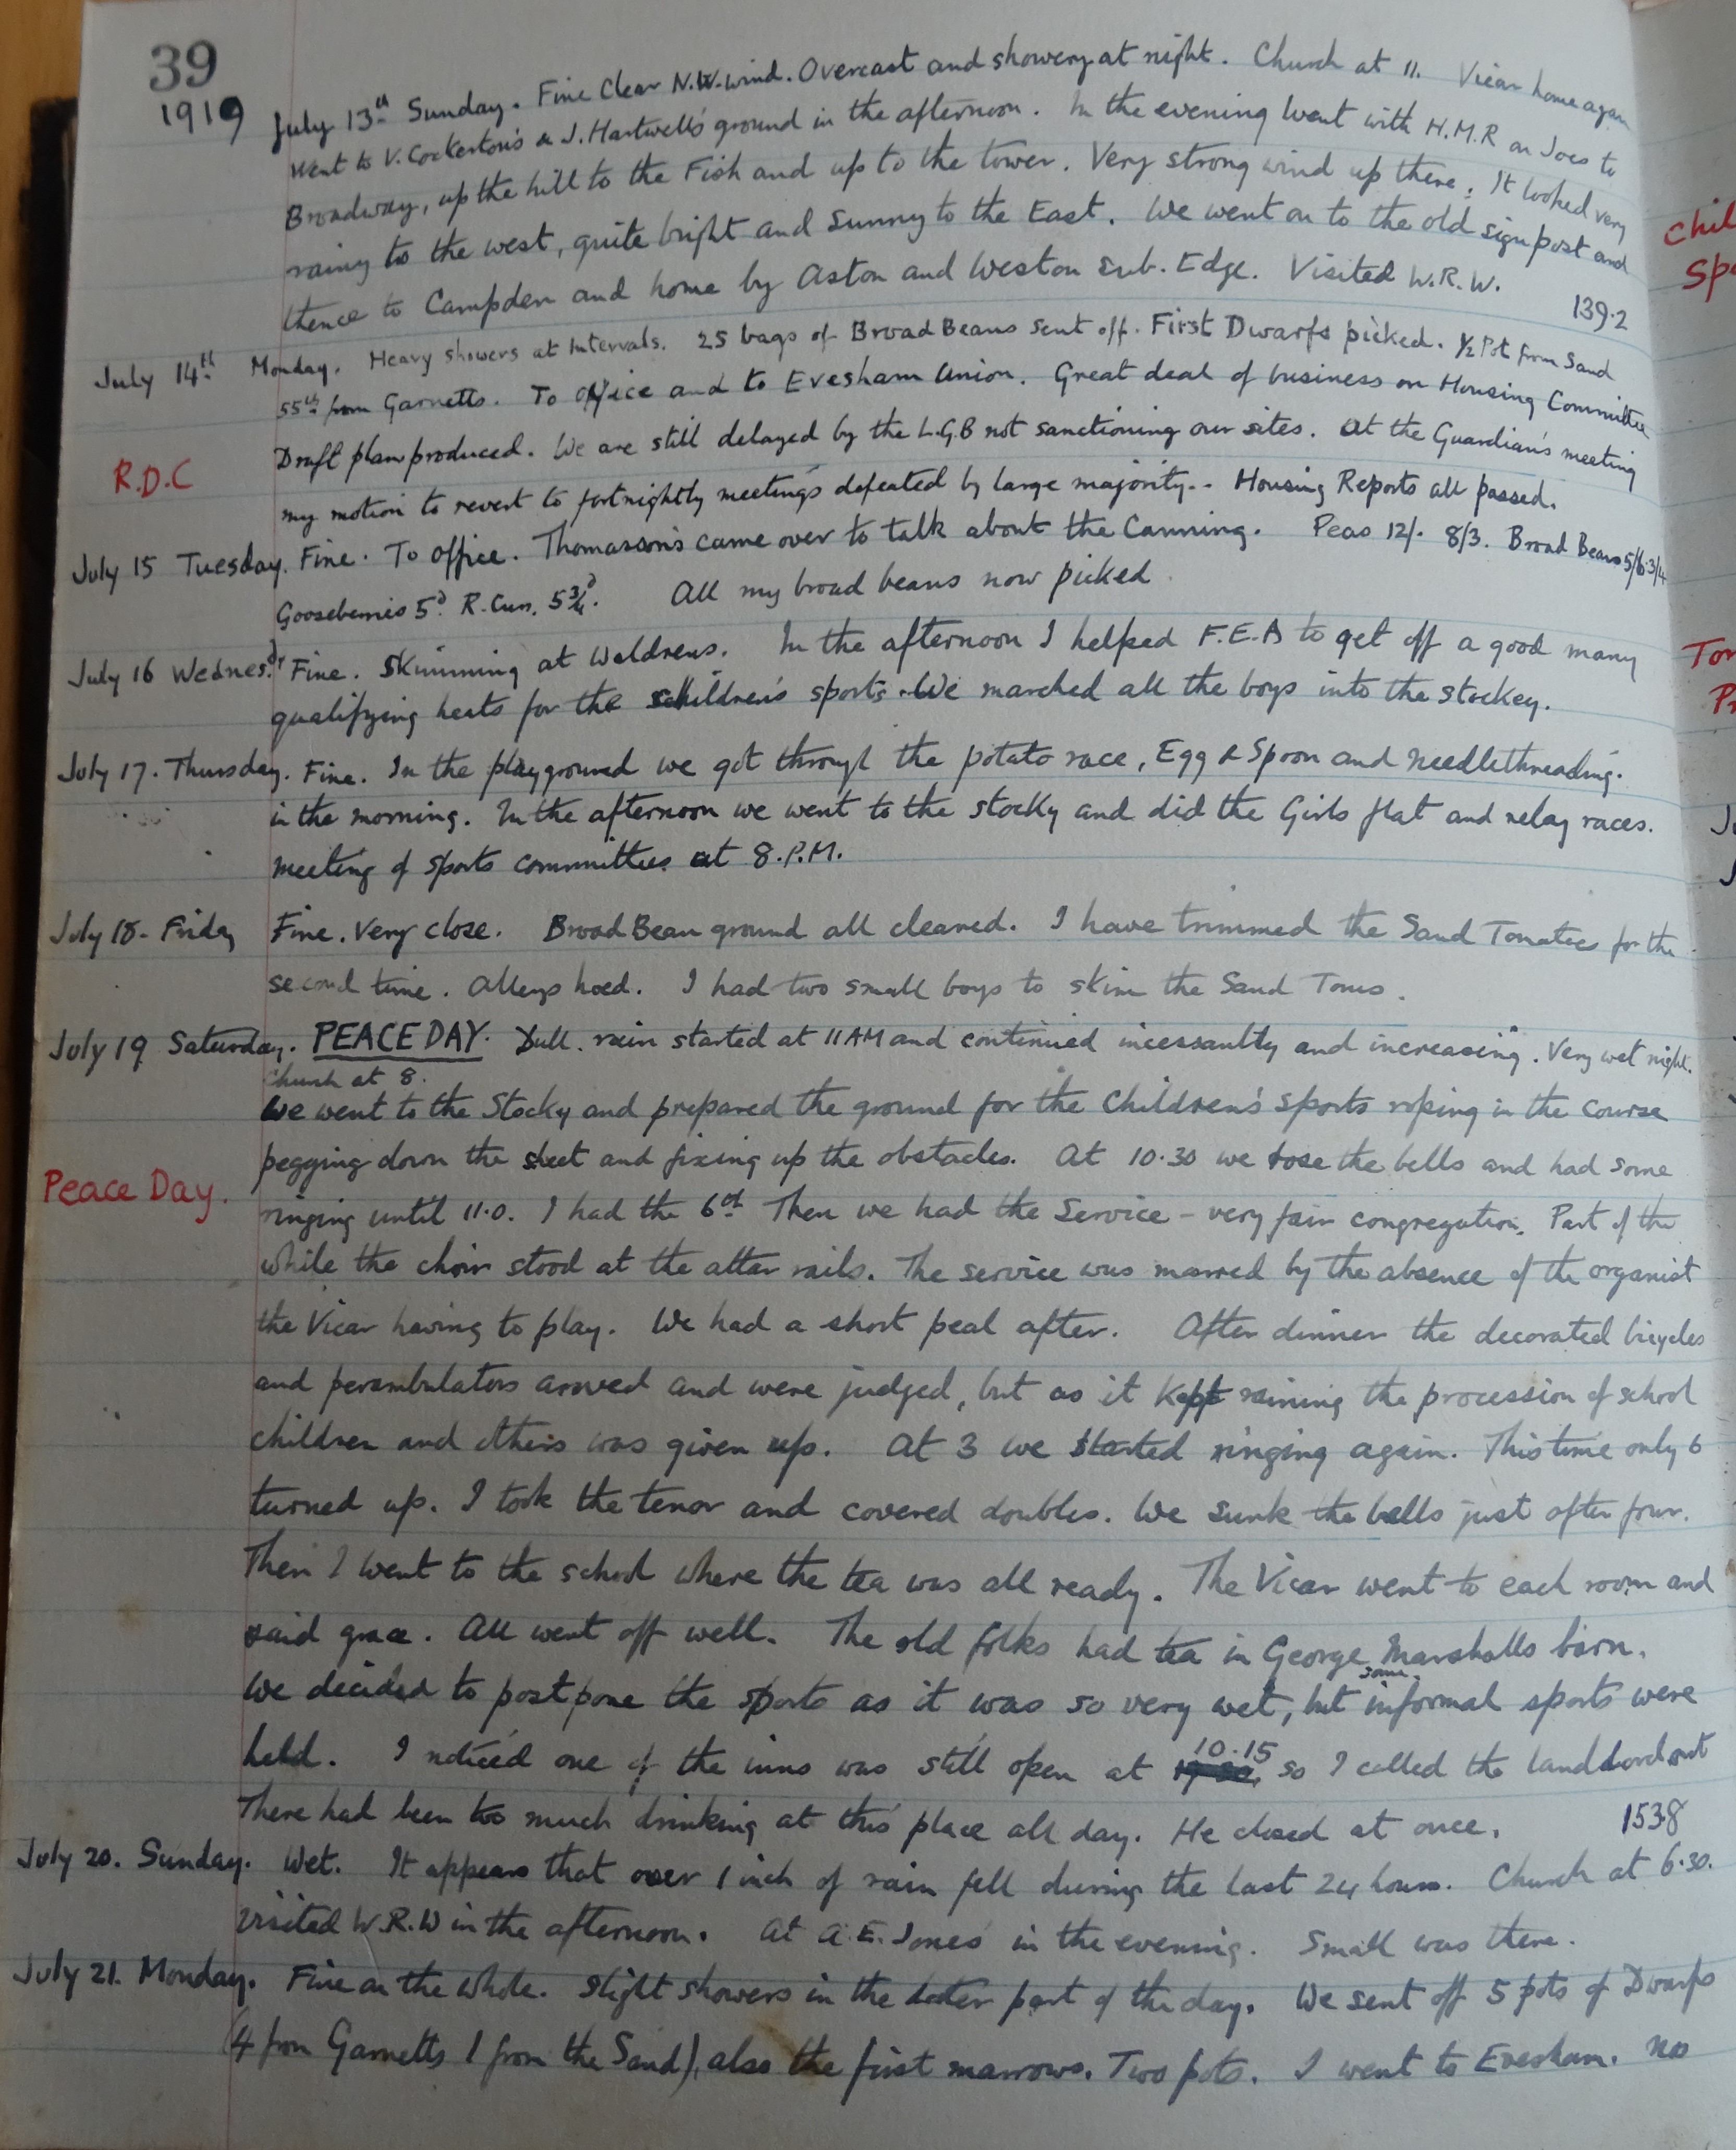 39
1919
July 13th Sunday. Fine Clear N.W. wind. Overcast and showery at night. Church at 11. Vicar home again
Went to V. Cockerton's & J. Hartwell's ground in the afternoon. In the evening went with H.M.R on Joes to
Broadway, up the hill to the Fish and up to the tower. Very strong wind up there. It looked very
rainy to the west, quite bright and sunny to the East. We went on to the old sign post and
thence to Campden and home by Aston and Weston Sub. Edge. Visited W.R.W.
139.2
July 14th Monday. Heavy showers at Intervals. 25 bags of Broad Beans sent off. First Dwarfs picked. ½ Pot from Sand
from Garnetts. To Office and to Evesham Union. Great deal of business on Housing Committee
Draft plan produced. We are still delayed by the L.G.B not sanctioning our sites. At the Guardian's meeting
R.D.C
my motion to revert to fortnightly meetings defeated by large majority.. Housing Reports all passed.
July 15 Tuesday. Fine. To office. Thomasson's came over to talk about the Canning. Peas 12/- 8/3. Broad Beans 5/6. 3/4
Gooseberries 5d R. Curr. 5¾d. All my broad beans now picked.
July 16 Wednesdy Fine. Skimming at Waldrens. In the afternoon I helped F.E.A to get off a good many
qualifying heats for the children's sports. We marched all the boys into the stockey.
July 17. Thursday. Fine. In the playground we got through the potato race, Egg & Spoon and needlethreading.
in the morning. In the afternoon we went to the stocky and did the Girls flat and relay races.
meeting of sports committee at 8.P.M.
July 18. Friday Fine. Very close. Broad Bean ground all cleared. I have trimmed the Sand Tomatoes for the
second time. Alleys hoed. I had two small boys to skim the Sand Toms.
July 19 Saturday. PEACE DAY. Dull. rain started at 11 AM and continued incessantly and increasing. Very wet night.
Church at 8.
We went to the Stocky and prepared the ground for the Children's sports roping in the course
pegging down the sheet and fixing up the obstacles. At 10.30 we rose the bells and had some
Peace Day.
ringing until 11.0. I had the 6th Then we had the Service - very fair congregation. Part of the
while the choir stood at the altar rails. The service was marred by the absence of the organist
the Vicar having to play. We had a short peal after. After dinner the decorated bicycles
and perambulators arrived and were judged, but as it kept raining the procession of school
children and others was given up. At 3 we started ringing again. This time only 6
turned up. I took the tenor and covered doubles. We sunk the bells just after four.
Then I went to the school where the tea was all ready. The Vicar went to each room and
said grace. All went off well. The old folks had tea in George Marshalls barn.
We decided to postpone the sports as it was so very wet, but some informal sports were
held. I noticed one of the inns was still open at 10.15 so I called the landlord out
There had been too much drinking at this place all day. He closed at once.
153.8
July 20. Sunday. Wet. It appears that over 1 inch of rain fell during the last 24 hours. Church at 6.30.
visited W.R.W in the afternoon. At A.E. Jones' in the evening. Small was there.
July 21. Monday. Fine on the whole. Slight showers in the later part of the day. We sent off 5 pots of Dwarfs
(4 from Garnetts 1 from the Sand), also the first marrows. Two pots. I went to Evesham. no